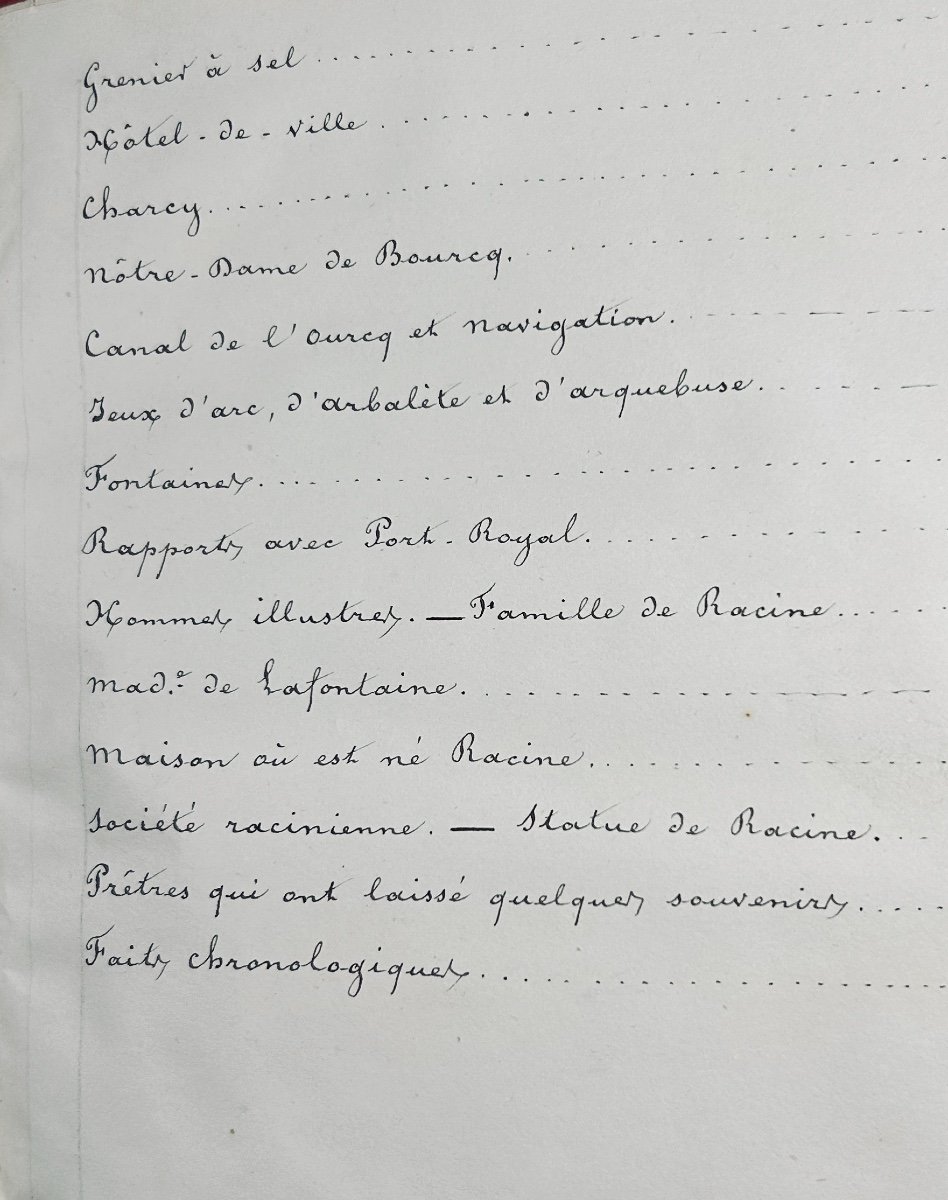 Grenier à sel
Hôtel-de-ville
Charcy.
Nôtre-Dame de Bourcq.
Canal de l'Ourcq et navigation.
Jeux d'arc, d'arbalète et d'arquebuse.
Fontaines.
Rapports avec Port-Royal.
Hommes illustres. — Famille de Racine
Mad.e de Lafontaine.
Maison où est né Racine.
Société racinienne. — Statue de Racine.
Prêtres qui ont laissé quelques souvenirs.
Faits chronologiques.